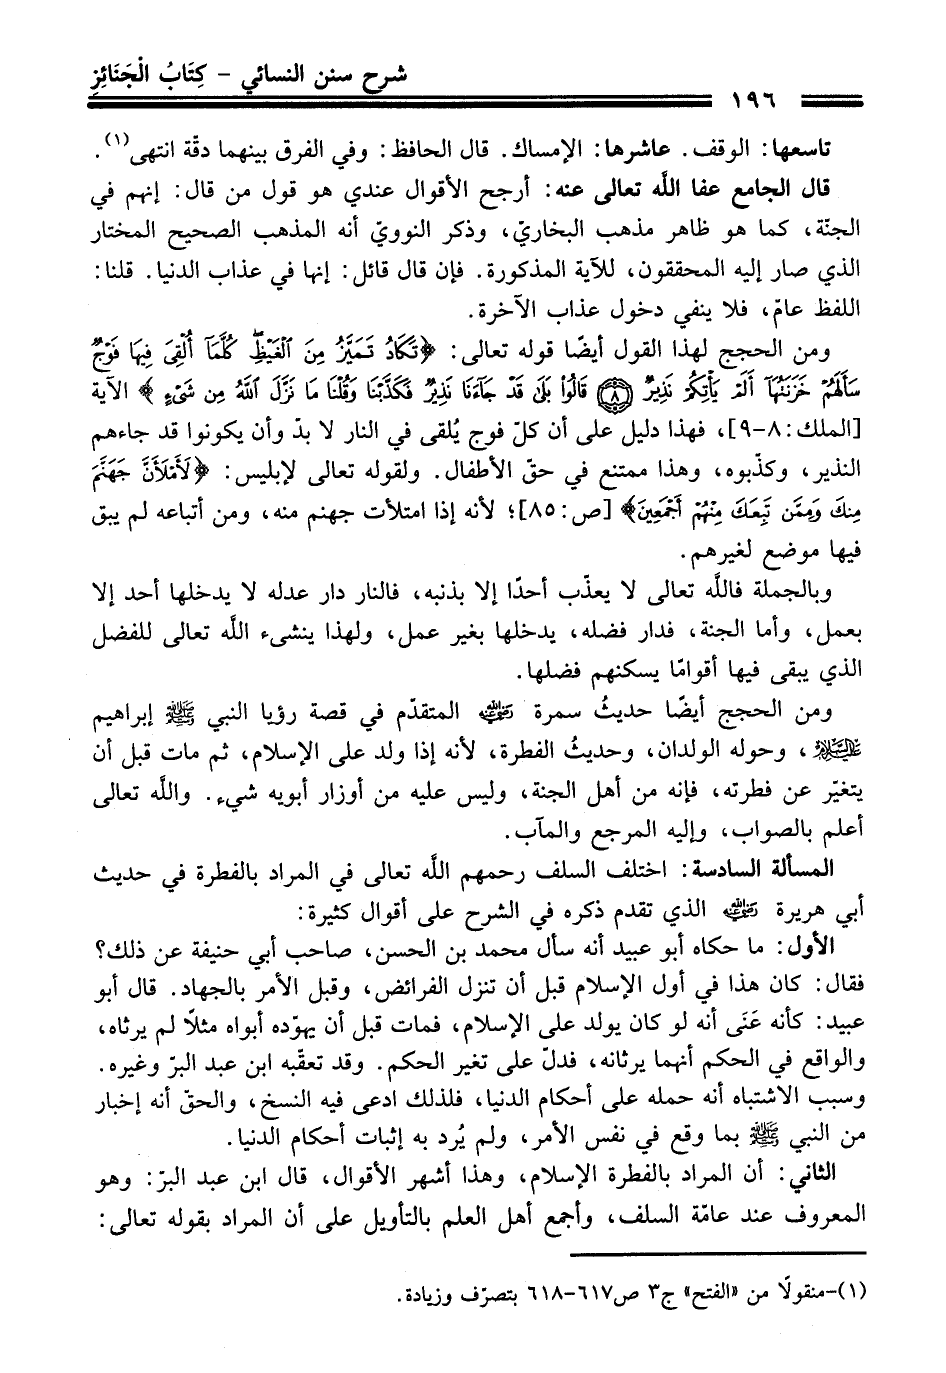 شرح سنن النسائي - كِتَابُ الْجَنَائِزِ
١٩٦
تاسعها: الوقف. عاشرها: الإمساك. قال الحافظ: وفي الفرق بينهما دقّة انتهى(١).
قال الجامع عفا اللَّه تعالى عنه: أرجح الأقوال عندي هو قول من قال: إنهم في
الجنّة، كما هو ظاهر مذهب البخاريّ، وذكر النوويّ أنه المذهب الصحيح المختار
الذي صار إليه المحققون، للآية المذكورة. فإن قال قائل: إنها في عذاب الدنيا. قلنا:
اللفظ عامّ، فلا ينفي دخول عذاب الآخرة.
ومن الحجج لهذا القول أيضًا قوله تعالى: ﴿تَكَادُ تَمَيَّزُ مِنَ ٱلْغَيْظِۖ كُلَّمَآ أُلْقِىَ فِيهَا فَوْجٌ
سَأَلَهُمْ خَزَنَتُهَآ أَلَمْ يَأْتِكُمْ نَذِيرٌ ۝٨ قَالُوا۟ بَلَىٰ قَدْ جَآءَنَا نَذِيرٌ فَكَذَّبْنَا وَقُلْنَا مَا نَزَّلَ ٱللَّهُ مِن شَىْءٍ﴾ الآية
[الملك: ٨-٩]، فهذا دليل على أن كلّ فوج يُلقى في النار لا بدّ وأن يكونوا قد جاءهم
النذير، وكذّبوه، وهذا ممتنع في حقّ الأطفال. ولقوله تعالى لإبليس: ﴿لَأَمْلَأَنَّ جَهَنَّمَ
مِنكَ وَمِمَّن تَبِعَكَ مِنْهُمْ أَجْمَعِينَ﴾ [ص: ٨٥]؛ لأنه إذا امتلأت جهنم منه، ومن أتباعه لم يبق
فيها موضع لغيرهم.
وبالجملة فاللَّه تعالى لا يعذّب أحدًا إلا بذنبه، فالنار دار عدله لا يدخلها أحد إلا
بعمل، وأما الجنة، فدار فضله، يدخلها بغير عمل، ولهذا ينشىء اللَّه تعالى للفضل
الذي يبقى فيها أقوامًا يسكنهم فضلها.
ومن الحجج أيضًا حديثُ سمرة رضي الله عنه المتقدّم في قصة رؤيا النبي ﷺ إبراهيم
عليه السلام، وحوله الولدان، وحديثُ الفطرة، لأنه إذا ولد على الإسلام، ثم مات قبل أن
يتغيّر عن فطرته، فإنه من أهل الجنة، وليس عليه من أوزار أبويه شيء. واللَّه تعالى
أعلم بالصواب، وإليه المرجع والمآب.
المسألة السادسة: اختلف السلف رحمهم اللَّه تعالى في المراد بالفطرة في حديث
أبي هريرة رضي الله عنه الذي تقدم ذكره في الشرح على أقوال كثيرة:
الأول: ما حكاه أبو عبيد أنه سأل محمد بن الحسن، صاحب أبي حنيفة عن ذلك؟
فقال: كان هذا في أول الإسلام قبل أن تنزل الفرائض، وقبل الأمر بالجهاد. قال أبو
عبيد: كأنه عَنَى أنه لو كان يولد على الإسلام، فمات قبل أن يهوّده أبواه مثلًا لم يرثاه،
والواقع في الحكم أنهما يرثانه، فدلّ على تغير الحكم. وقد تعقّبه ابن عبد البرّ وغيره.
وسبب الاشتباه أنه حمله على أحكام الدنيا، فلذلك ادعى فيه النسخ، والحقّ أنه إخبار
من النبي ﷺ بما وقع في نفس الأمر، ولم يُرد به إثبات أحكام الدنيا.
الثاني: أن المراد بالفطرة الإسلام، وهذا أشهر الأقوال، قال ابن عبد البرّ: وهو
المعروف عند عامّة السلف، وأجمع أهل العلم بالتأويل على أن المراد بقوله تعالى:
(١)-منقولًا من «الفتح» ج٣ ص٦١٧-٦١٨ بتصرّف وزيادة.